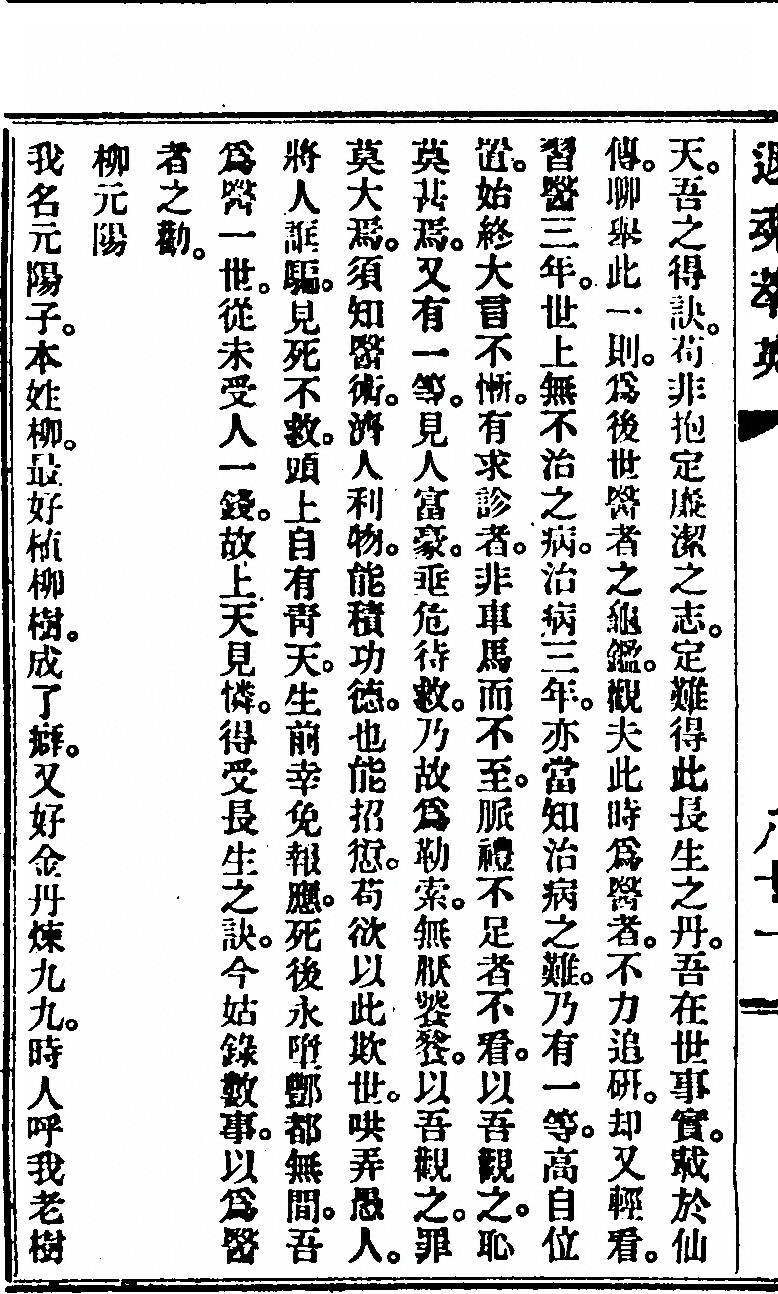 天。吾之得訣。苟非抱定廉潔之志。定難得此長生之丹。吾在世事實。載於仙
傳。聊舉此一則。爲後世醫者之龜鑑。觀夫此時爲醫者。不力追研。却又輕看。
習醫三年。世上無不治之病。治病三年。亦當知治病之難。乃有一等。高自位
置。始終大言不慚。有求診者。非車馬而不至。脈禮不足者不看。以吾觀之。恥
莫甚焉。又有一等。見人富豪。垂危待救。乃故爲勒索。無厭饕餮。以吾觀之。罪
莫大焉。須知醫術。濟人利物。能積功德。也能招愆。苟欲以此欺世。哄弄愚人。
將人誆騙。見死不救。頭上自有青天。生前幸免報應。死後永墮酆都無間。吾
爲醫一世。從未受人一錢。故上天見憐。得受長生之訣。今姑錄數事。以爲醫
者之勸。
柳元陽
我名元陽子。本姓柳。最好植柳樹。成了癖。又好金丹煉九九。時人呼我老樹